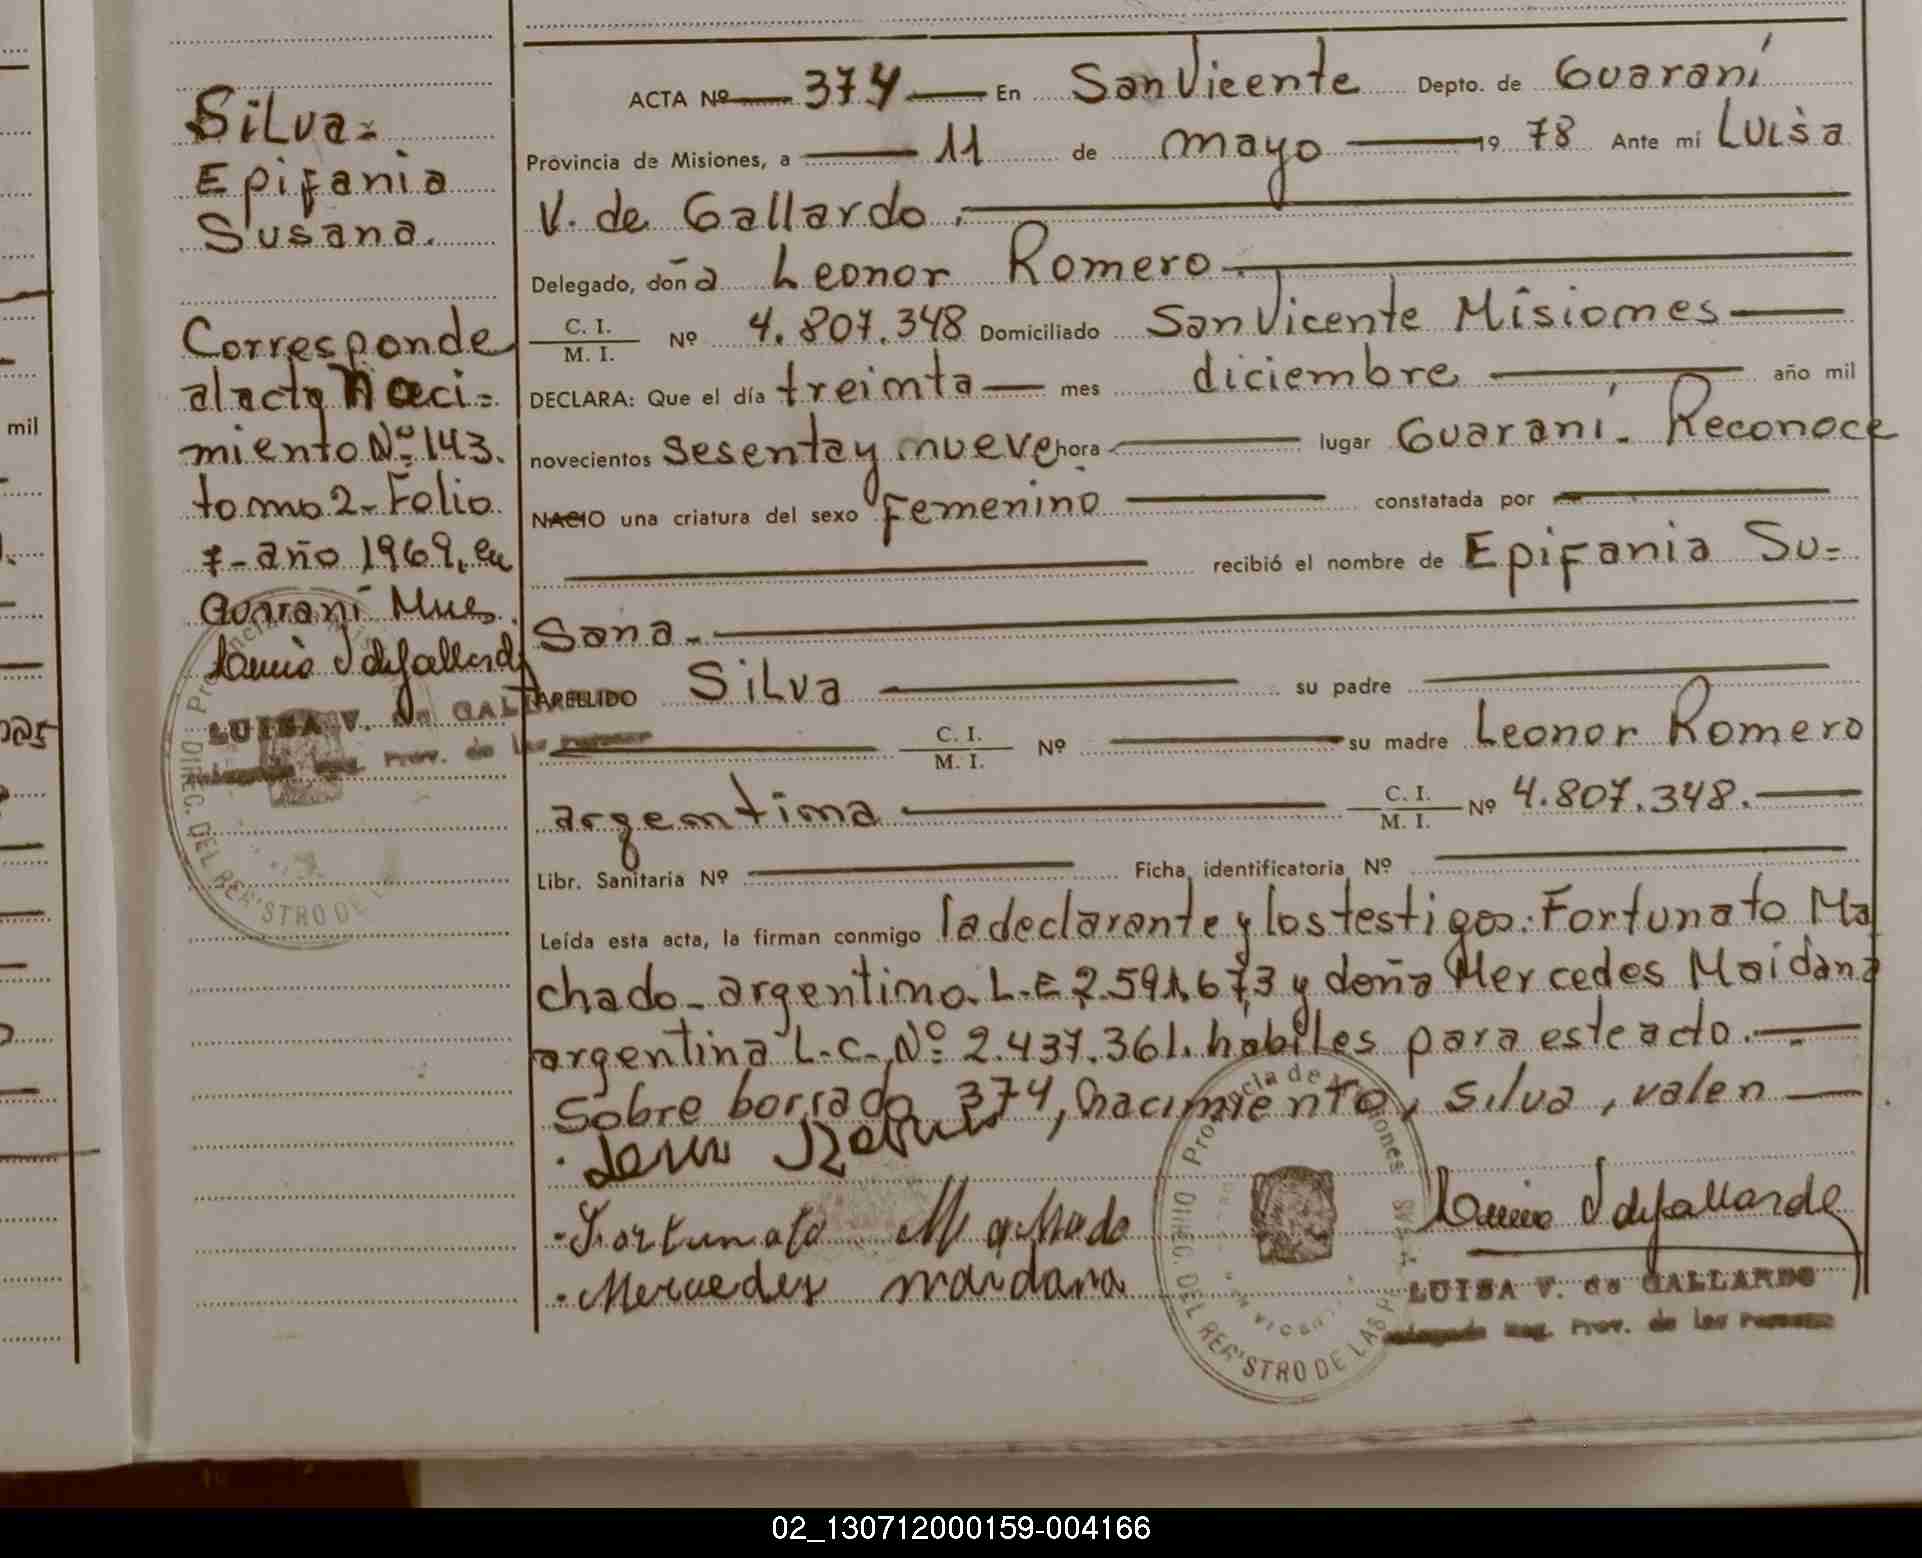 Silva-
Epifania
Susana.
Corresponde
al acta Naci-
miento Nº 143.
tomo 2- Folio
7- año 1969, en
Guaraní Mnes.
LUISA V. de GALLARDO
Reg. Prov. de las Personas
ACTA Nº 374 En San Vicente Depto. de Guaraní
Provincia de Misiones, a 11 de mayo 19 78 Ante mí Luisa
V. de Gallardo.
Delegado, doña Leonor Romero.
C. I.
M. I. Nº 4.807.348 Domiciliado San Vicente Misiones
DECLARA: Que el día treinta mes diciembre año mil
novecientos sesenta y nueve hora lugar Guaraní. Reconoce
NACIO una criatura del sexo Femenino constatada por
recibió el nombre de Epifania Su-
sana.
APELLIDO Silva su padre
C. I.
M. I. Nº su madre Leonor Romero
argentina C. I.
M. I. Nº 4.807.348.
Libr. Sanitaria Nº Ficha identificatoria Nº
Leída esta acta, la firman conmigo la declarante y los testigos: Fortunato Ma
chado- argentino. L.E 2.591.673 y doña Mercedes Maidana
argentina L.C. Nº 2.437.361. habiles para este acto.
Sobre borrado 374, nacimiento, silva, valen
Fortunato Machado
Mercedes maidana
Provincia de Misiones
DIREC. DEL REGISTRO DE LAS
LUISA V. de GALLARDO
Delegada Reg. Prov. de las Personas
mil
02_130712000159-004166